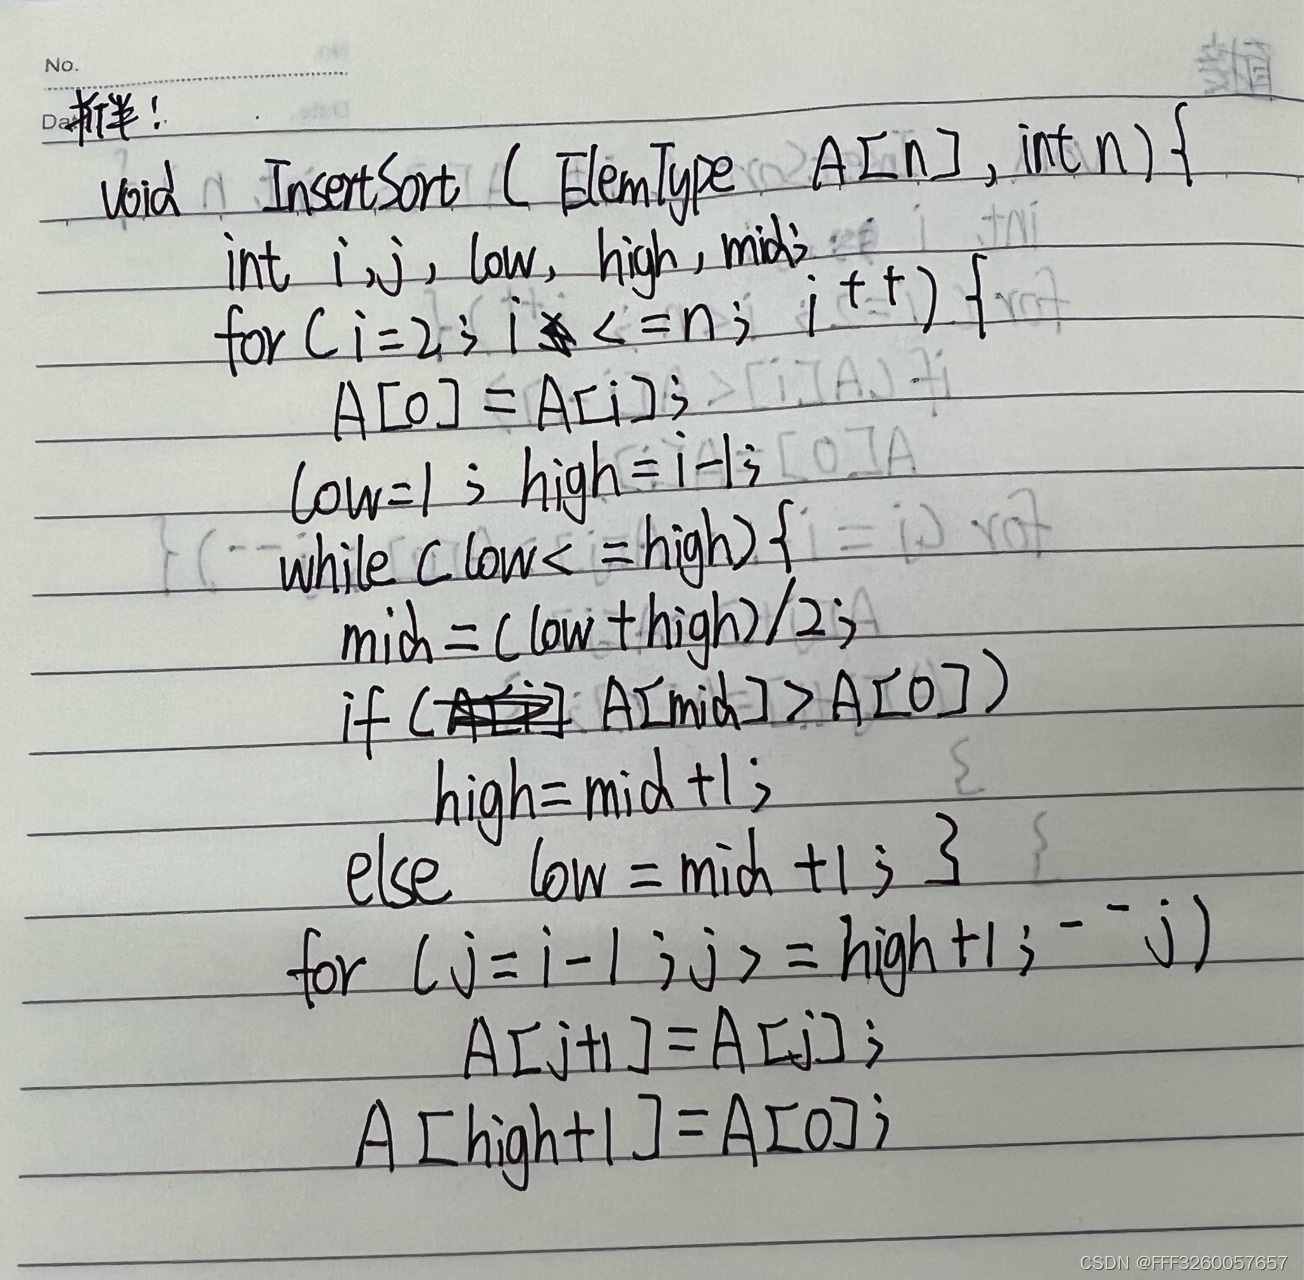 No.
折半！
void InsertSort ( ElemType A[n], int n) {
int i,j, low, high, mid;
for ( i=2; i <=n; i++) {
A[0] = A[i];
low=1 ; high=i-1;
while (low< =high) {
mid =(low+high)/2;
if ( A[mid] > A[0])
high=mid+1;
else low=mid+1; }
for (j=i-1 ;j> = high+1; --j)
A[j+1]=A[j];
A[high+1]=A[0];
CSDN @FFF3260057657